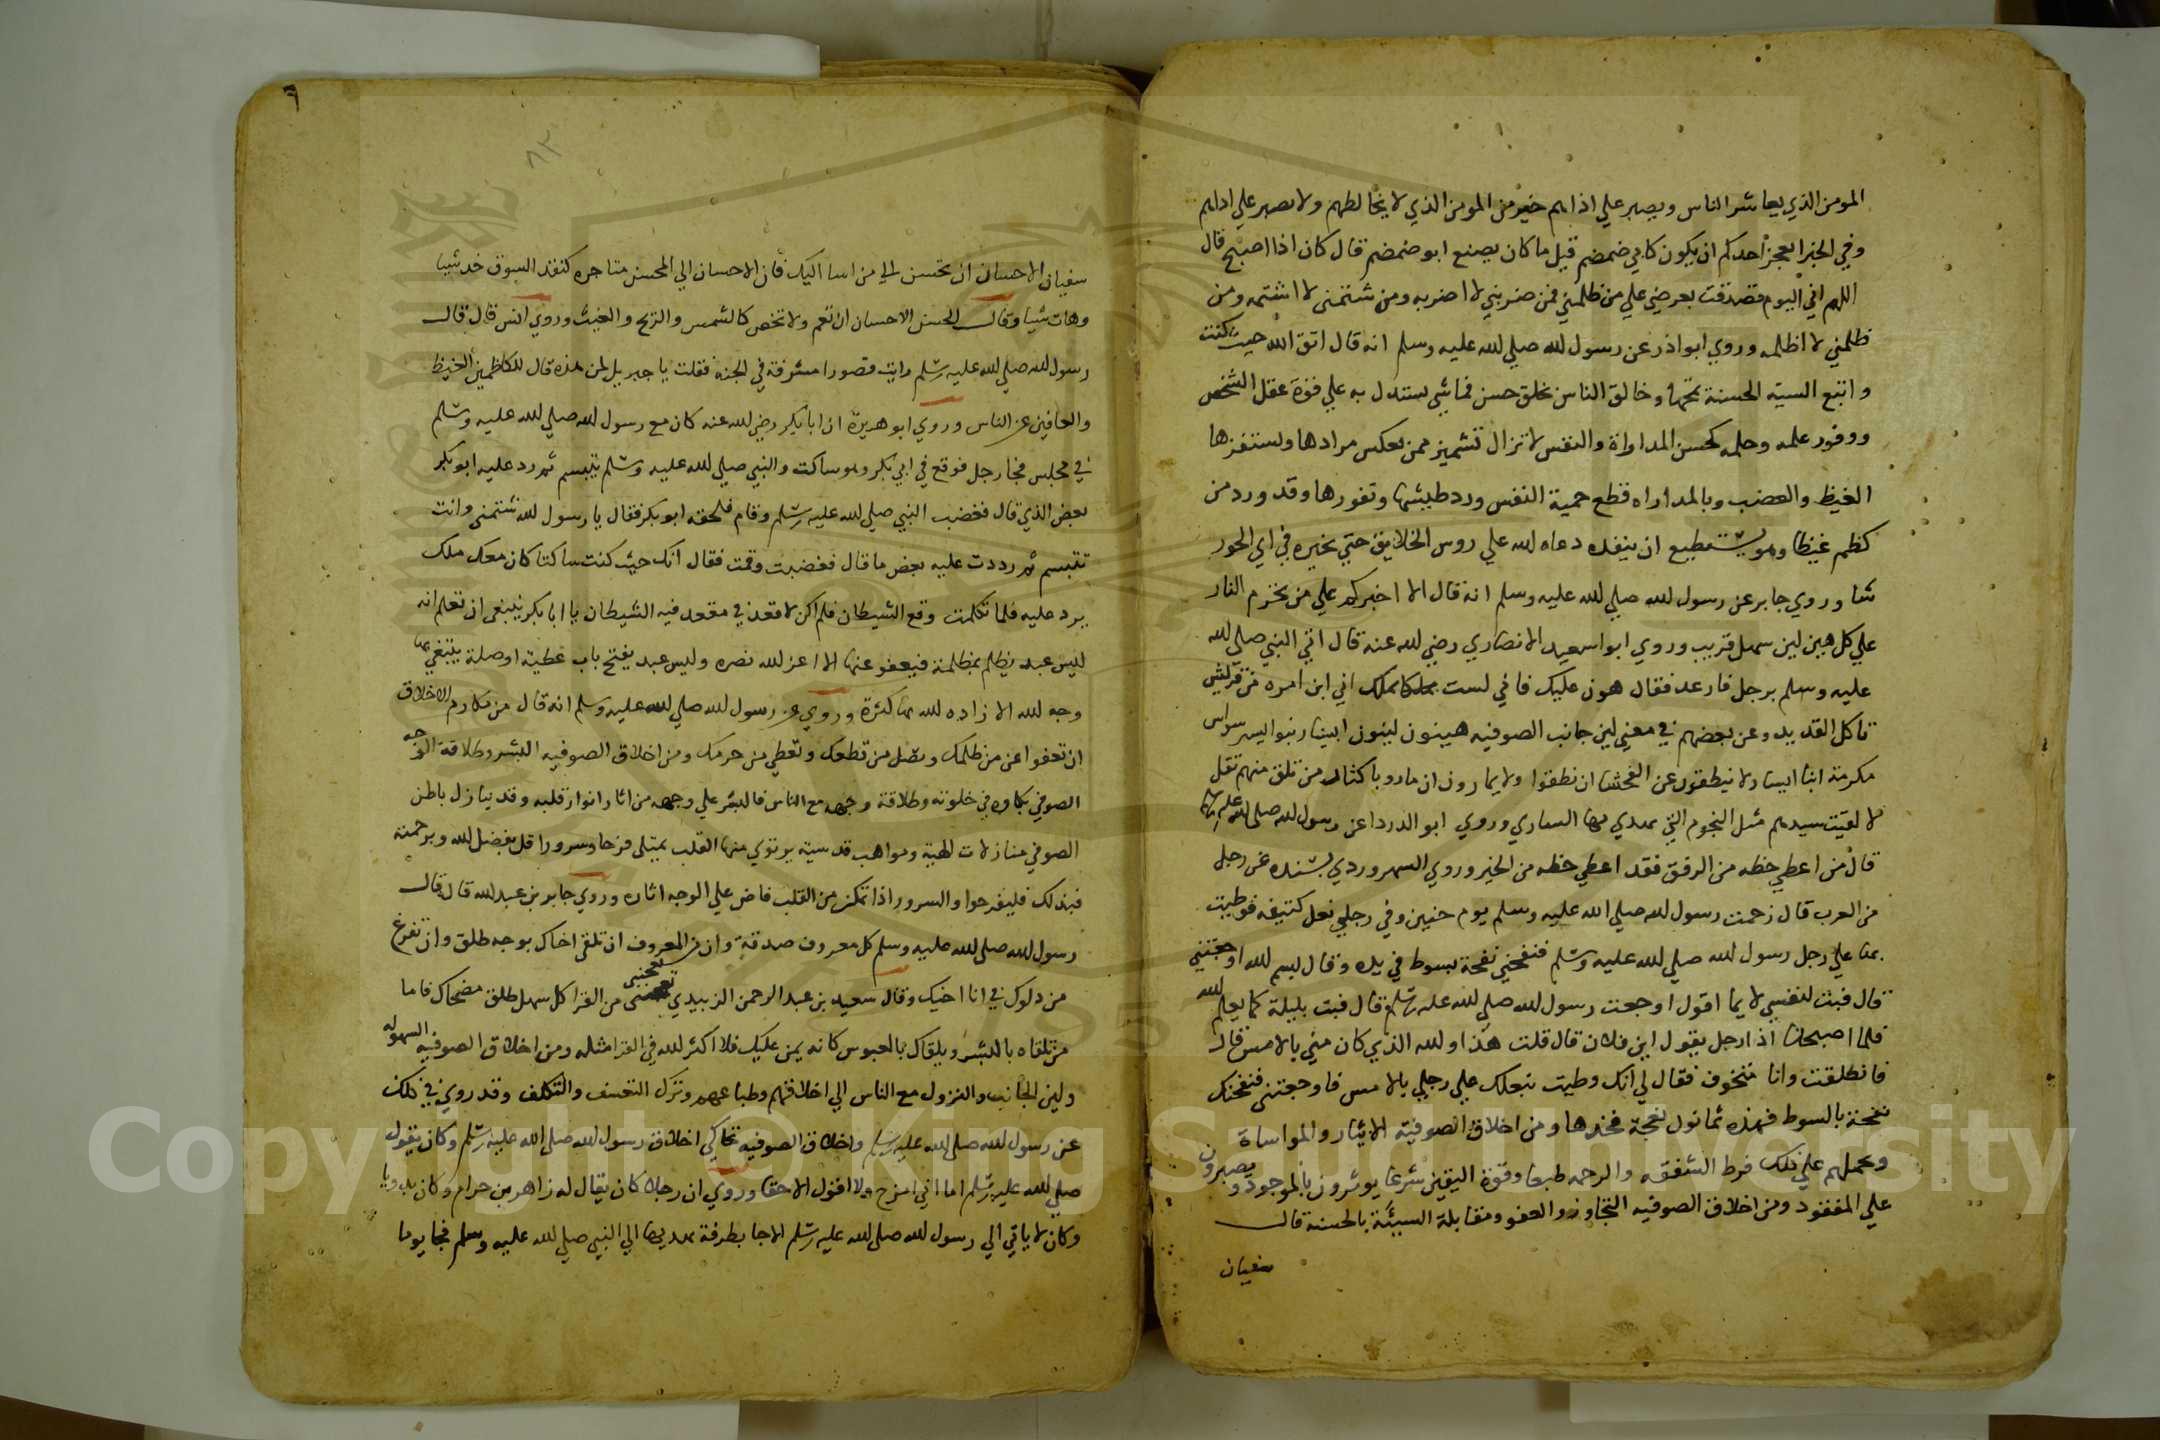 المومن الذي يعاشر الناس ويصبر علي اذاهم خير من المومن الذي لا يخالطهم ولا يصبر علي اذاهم
وفي الخبر ايعجز احدكم ان يكون كابي ضمضم قيل ما كان يصنع ابو ضمضم قال كان اذا اصبح قال
اللهم اني اليوم تصدقت بعرضي علي من ظلمني فمن ضربني لا اضربه ومن شتمني لا اشتمه ومن
ظلمني لا اظلمه وروي ابو اذر عن رسول لله صلي لله عليه وسلم انه قال اتق الله حيث كنت
واتبع السية الحسنة تمحها وخالق الناس بخلق حسن فما شي يستدل به علي قوة عقل الشخص
ووفور علمه وحلمه كحسن المداواة والنفس لا تزال تشميز ممن يعكس مرادها ويستفزها
الغيظ والغضب وبالمداراه قطع حمية النفس ورد طيشها ونفورها وقد ورد من
كظم غيظا وهو يستطيع ان ينفده دعاه لله علي روس الخلايق حتي يخيره في اي الحور
شا وروي جابر عن رسول لله صلي لله عليه وسلم انه قال الا اخبركم علي من تحرم النار
علي كل هين لين سهل قريب وروي ابوا سعيد الانصاري رضي لله عنه قال اتي النبي صلي لله
عليه وسلم برجل فارعد فقال هون عليك فاني لست بملك انما انا ابن امره من قريش
تاكل القديد وعن بعضهم في معني لين جانب الصوفيه هينون لينون ايسار بنوا يسر سواس
مكرمة ابنا ايسار لا ينطقون عن الفحشا ان نطقوا ولا يمارون ان ماروا باكثار من تلق منهم تقل
لا لقيت سيدهم مثل النجوم التي يهدي بها الساري وروي ابو الدردا عن رسول لله صلي لله عليه وسلم
قال من اعطي حظه من الرفق فقد اعطي حظه من الخير وروي السهروردي بسنده عن رجل
من العرب قال زحمت رسول لله صلي الله عليه وسلم يوم حنين وفي رجلي نعل كثيفه فوطيت
بها علي رجل رسول لله صلي لله عليه وسلم فنفحني نفحة بسوط في يده وقال بسم لله اوجعتني
قال فبت لنفسي لايما اقول اوجعت رسول لله صلي لله عليه وسلم قال فبت بليلة كما يعلم لله
فلما اصبحنا اذا رجل يقول اين فلان قال قلت هذا والله الذي كان مني بالامس قال
فانطلقت وانا متخوف فقال لي انك وطيت بنعلك علي رجلي بالامس فاوجعتني فنفحتك
نفحة بالسوط فهذه ثمانون نعجة فخذها ومن اخلاق الصوفية الايثار والمواساة
ويحملهم علي ذلك فرط الشفقه والرحمه طبعا وقوة اليقين شرعا يوثرون بالموجود ويصبرون
علي المفقود ومن اخلاق الصوفيه التجاوز والعفو ومقابلة السيئة بالحسنة قال
سفيان
٦
٨٣
سفيان الاحسان ان تحسن الي من اسا اليك فان الاحسان الي المحسن متاجره كنقد السوق خد شيا
وهات شيا وقال الحسن الاحسان ان تعم ولا تخص كالشمس والريح والغيث وروي انس قال قال
رسول لله صلي لله عليه وسلم رايت قصورا مشرفة في الجنه فقلت يا جبريل لمن هذه قال للكاظمين الغيظ
والعافين عن الناس وروي ابو هريرة ان ابا بكر رضي لله عنه كان مع رسول لله صلي لله عليه وسلم
في مجلس فجا رجل فوقع في ابي بكر وهو ساكت والنبي صلي لله عليه وسلم يتبسم ثم رد عليه ابو بكر
بعض الذي قال فغضب النبي صلي لله عليه وسلم وقام فلحقه ابو بكر فقال يا رسول لله شتمني وانت
تتبسم ثم رددت عليه بعض ما قال فغضبت وقمت فقال انك حيث كنت ساكتا كان معك ملك
يرد عليه فلما تكلمت وقع الشيطان فلم اكن لاقعد في مقعد فيه الشيطان يا ابا بكر ينبغي ان تعلم انه
ليس عبد يظلم بمظلمة فيعفو عنها الا اعز لله نصره وليس عبد يفتح باب عطية او صلة يبتغي بها
وجه لله الا زاده لله بها كثرة وروي عن رسول لله صلي لله عليه وسلم انه قال من مكارم الاخلاق
ان تعفوا عن من ظلمك وتصل من قطعك وتعطي من حرمك ومن اخلاق الصوفيه البشر وطلاقة الوجه
الصوفي بكاوه في خلوته وطلاقة وجهه مع الناس فالبشر علي وجهه من اثار انوار قلبه وقد ينازل باطن
الصوفي منازلات الهية ومواهب قدسية يرتوي منها القلب يمتلي فرحا وسرورا قل بفضل لله وبرحمته
فبذلك فليفرحوا والسرور اذا تمكن من القلب فاض علي الوجه اثاره وروي جابر بن عبد لله قال قال
رسول لله صلي لله عليه وسلم كل معروف صدقة وان من المعروف ان تلقي اخاك بوجه طلق وان تفرغ
من دلوك في انا اخيك وقال سعيد بن عبد الرحمن الزبيدي يعجبني من القرا كل سهل طلق مضحاك فاما
من تلقاه بالبشر ويلقاك بالعبوس كانه يمن عليك فلا اكثر لله في القرا مثله ومن اخلاق الصوفيه السهوله
ولين الجانب والنزول مع الناس الي اخلاقهم وطباعهم وترك التعسف والتكلف وقد روي في ذلك
عن رسول لله صلي لله عليه وسلم واخلاق الصوفيه تحاكي اخلاق رسول لله صلي الله عليه وسلم وكان يقول
صلي لله عليه وسلم اما اني امزح ولا اقول الا حقا وروي ان رجلا كان يقال له زاهر بن حرام وكان بدويا
وكان لا ياتي الي رسول لله صلي لله عليه وسلم الا جا بطرفة يهديها الي النبي صلي لله عليه وسلم فجا يوما
Copyright © King Saud University